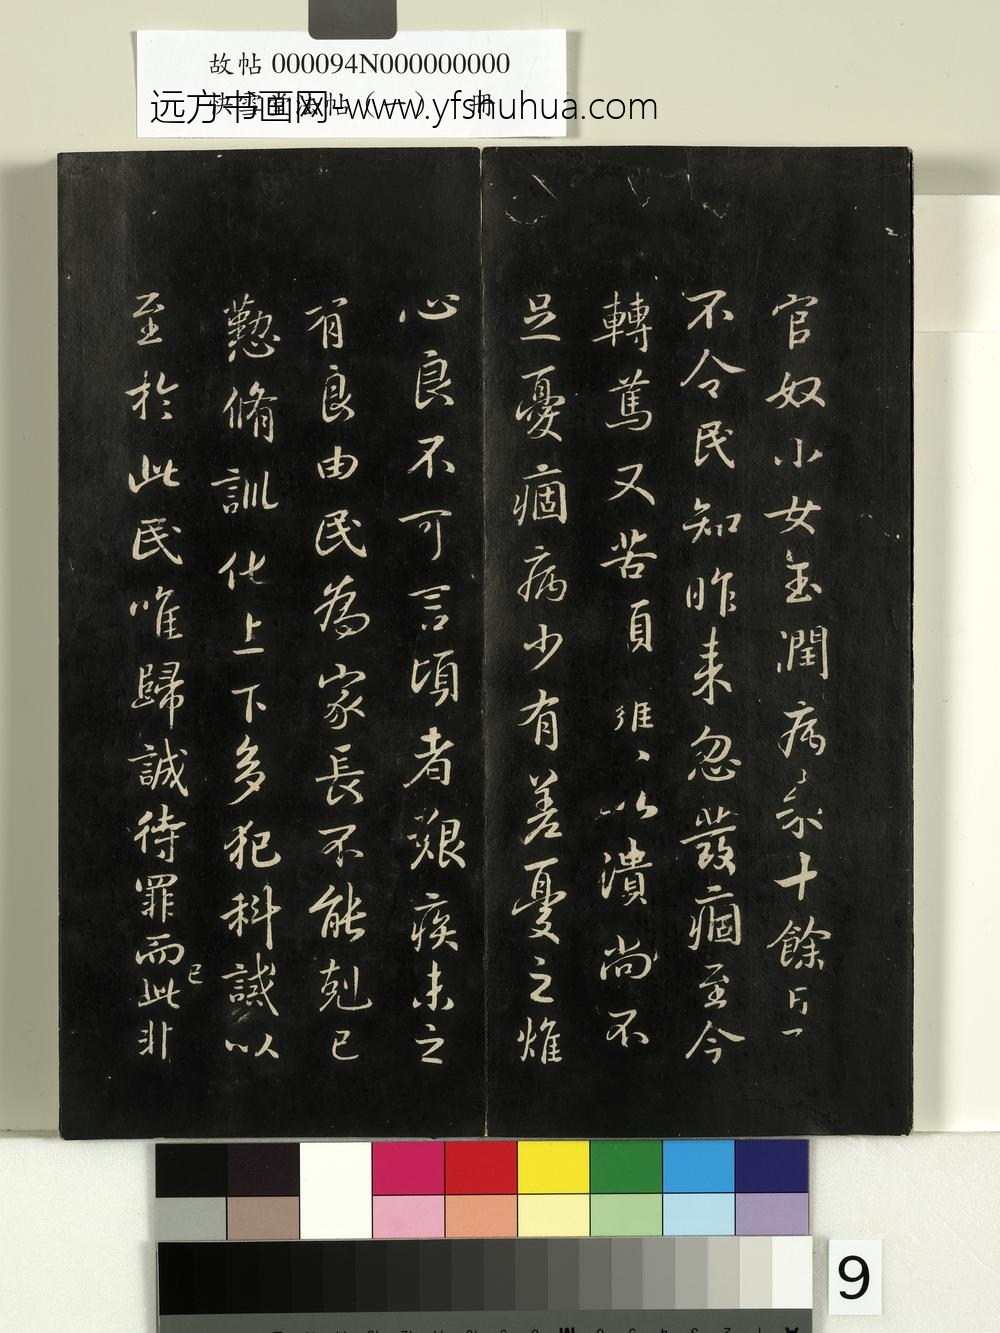 故帖 000094N000000000
快雪堂法帖（一） 冊
远方书画网-www.yfshuhua.com
官奴小女玉潤病來十餘日
不令民知昨來忽發痼至今
轉篤又苦頭癰以潰尚不
足憂痼病少有差憂之燋
心良不可言頃者艱疾未之
有良由民為家長不能剋己
懃脩訓化上下多犯科誡以
至於此民唯歸誠待罪而此非
已
9